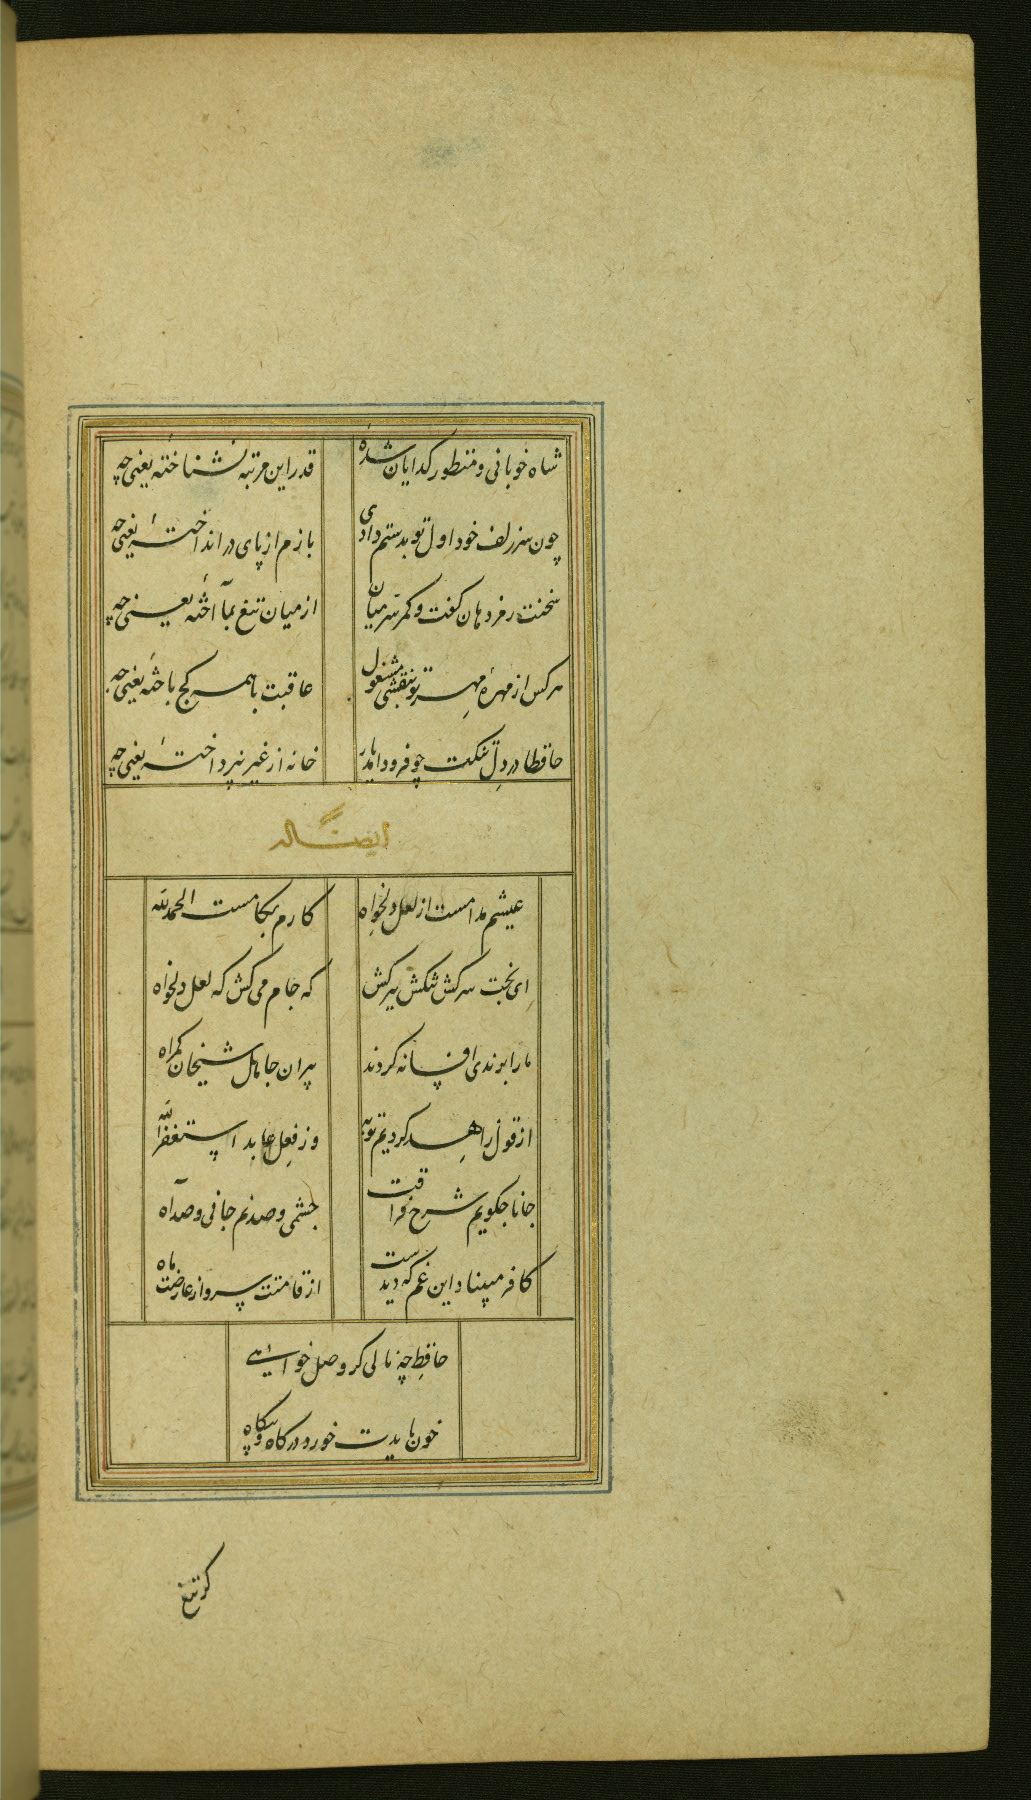 شاه خوبانی و منظور گدایان شده قدر این مرتبه نشناختهٔ یعنی چه
چون سر زلف خود اول تو بدستم دادی بازم از پای در انداختهٔ یعنی چه
سخنت رمز دهان گفت و کمر سر میان از میان تیغ بما آختهٔ یعنی چه
هر کس از مهرهٔ مهر تو بنقشی مشغول عاقبت با همه کج باختهٔ یعنی چه
حافظا در دل تنگت چو فرود اید یار خانه از غیر نپرداختهٔ یعنی چه
ایضا له
عیشم مدامست از لعل دلخواه کارم بکامست الحمدلله
ای بخت سرکش تنکش ببر کش که جام می کش که لعل دلخواه
ما را برندی افسانه کردند پیران جاهل شیخان گمراه
از قول زاهد کردیم توبه وز فعل عابد استغفرالله
جانا چگویم شرح فراقت چشمی و صد نم جانی و صد آه
کافر مبیناد این غم که دیدست از قامتت سرو از عارضت ماه
حافظ چه نالی گر وصل خواهی
خون بایدت خورد در گاه و بیگاه
گر تیغ